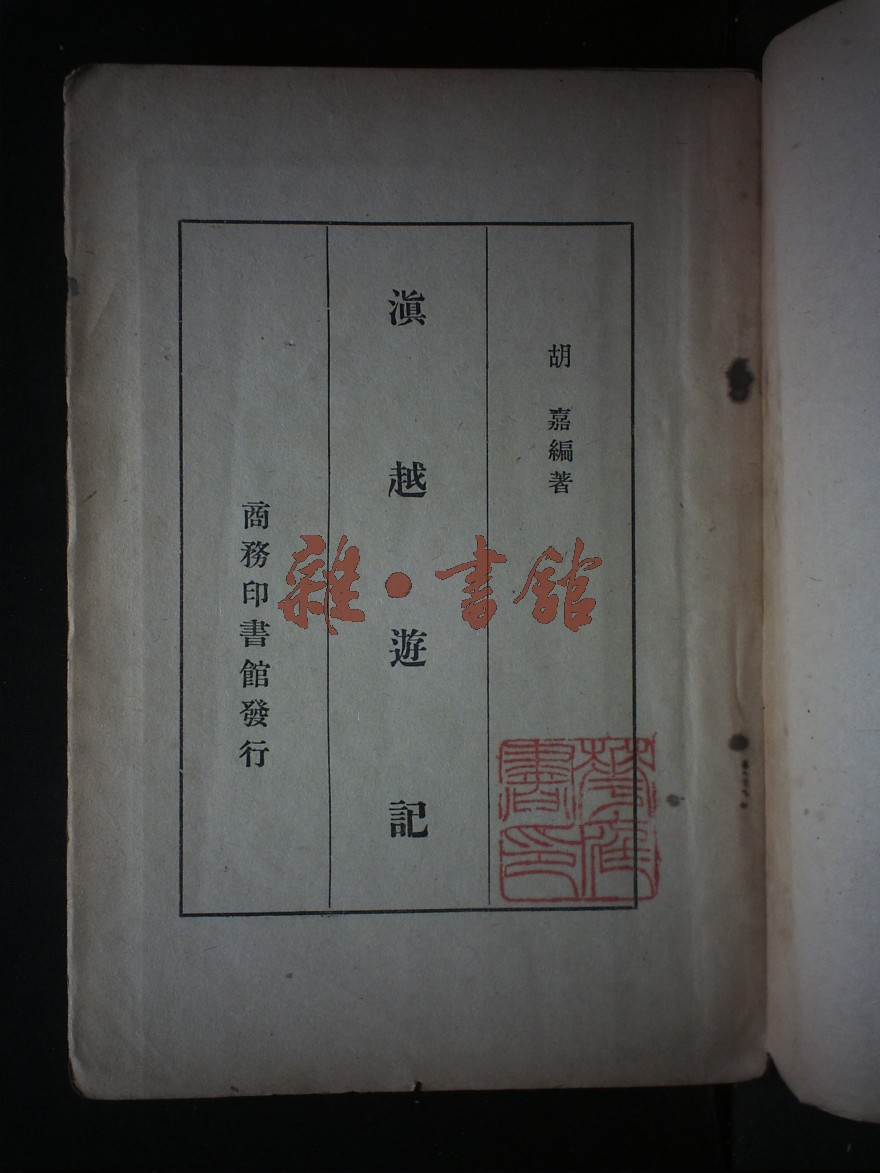 胡 嘉編著
滇越遊記
商務印書館發行
雜·書館